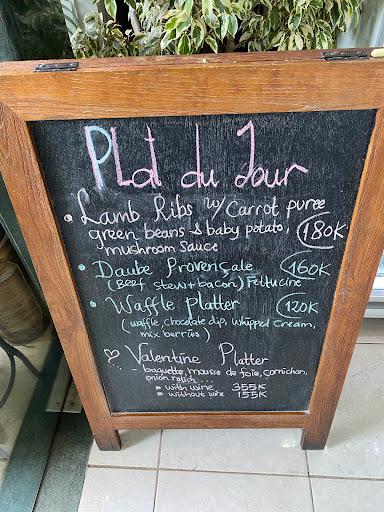 PLat du Jour
• Lamb Ribs w/ Carrot puree
green beans & baby potato, 180K
mushroom sauce
• Daube Provençale 160K
(Beef stew + bacon) Fettucine
• Waffle platter 120K
(waffle, chocolate dip, whipped cream,
mix berries)
♡ Valentine Platter
- baguette, mousse de foie, cornichon,
onion relish...
▪ with wine 355K
▪ without wine 155K